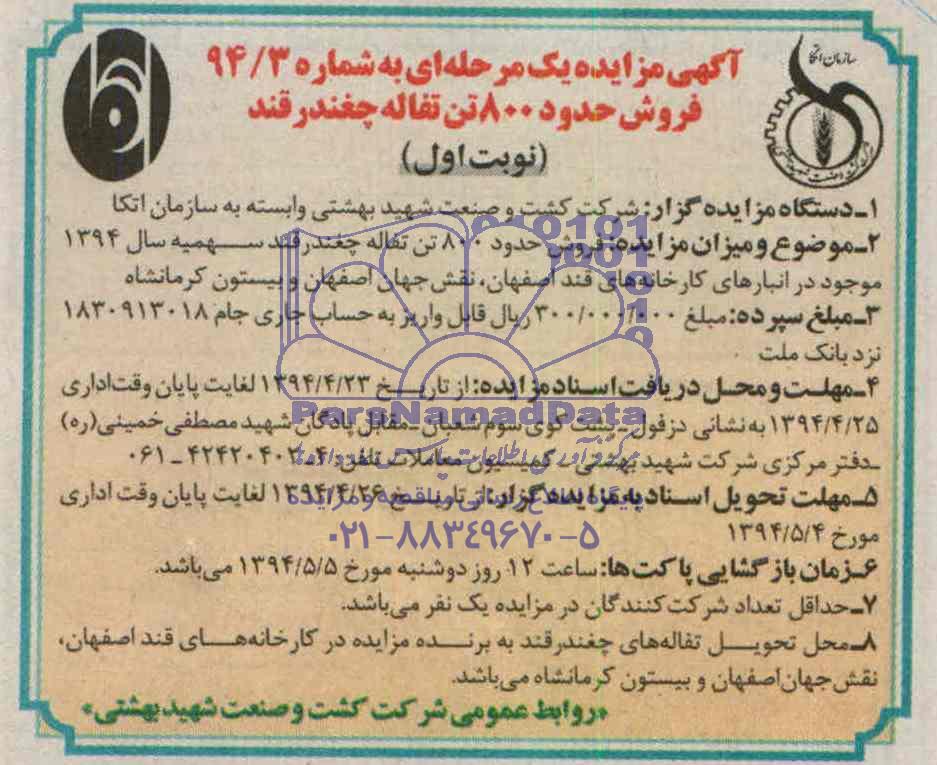 سازمان اتکا
آگهی مزایده یک مرحله‌ای به شماره ۹۴/۳
فروش حدود ۸۰۰ تن تفاله چغندرقند
(نوبت اول)
۱ـ دستگاه مزایده گزار: شرکت کشت و صنعت شهید بهشتی وابسته به سازمان اتکا
۲ـ موضوع و میزان مزایده: فروش حدود ۸۰۰ تن تفاله چغندرقند سهمیه سال ۱۳۹۴
موجود در انبارهای کارخانه‌های قند اصفهان، نقش جهان اصفهان و بیستون کرمانشاه
۳ـ مبلغ سپرده: مبلغ ۳۰۰/۰۰۰/۰۰۰ ریال قابل واریز به حساب جاری جام ۱۸۳۰۹۱۳۰۱۸
نزد بانک ملت
۴ـ مهلت و محل دریافت اسناد مزایده: از تاریخ ۱۳۹۴/۴/۲۳ لغایت پایان وقت اداری
ParsNamadData
۱۳۹۴/۴/۲۵ به نشانی دزفول ـ کوی سوم شعبان ـ مقابل پادگان شهید مصطفی خمینی(ره)
ـ دفتر مرکزی شرکت شهید بهشتی ـ کمیسیون معاملات تلفن: ۰۶۱ ـ ۴۲۴۲۰۴۰۲
۵ـ مهلت تحویل اسناد به مزایده گزار: از تاریخ ۱۳۹۴/۴/۲۶ لغایت پایان وقت اداری
مورخ ۱۳۹۴/۵/۴
۰۲۱-۸۸۳۴۹۶۷۰-۵
۶ـ زمان بازگشایی پاکت‌ها: ساعت ۱۲ روز دوشنبه مورخ ۱۳۹۴/۵/۵ می‌باشد.
۷ـ حداقل تعداد شرکت کنندگان در مزایده یک نفر می‌باشد.
۸ـ محل تحویل تفاله‌های چغندرقند به برنده مزایده در کارخانه‌های قند اصفهان،
نقش جهان اصفهان و بیستون کرمانشاه می‌باشد.
«روابط عمومی شرکت کشت و صنعت شهید بهشتی»